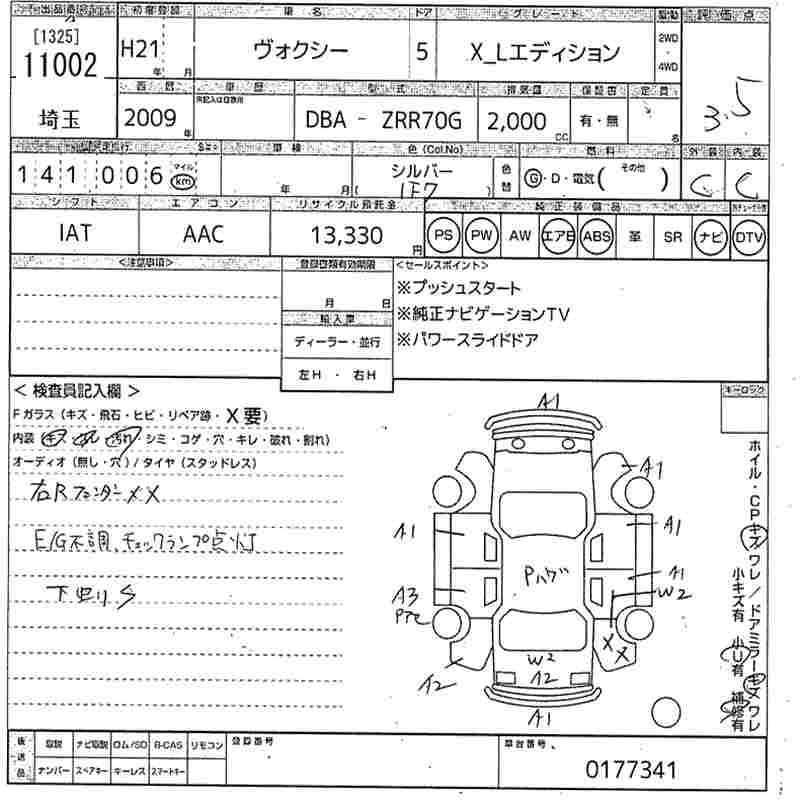 出品番号 初度登録 車名 ドア グレード 駆動 評価点
[1325]
11002
H21 年 月 ヴォクシー 5 X_Lエディション 2WD ・ 4WD
3.5
西暦 車歴 型式 排気量 保証書 定員
埼玉 2009 年 DBA - ZRR70G 2,000 CC 有・無 名
走行 車検 色(Col.No) 燃料 外装 内装
141,006 マイル km 年 月 シルバー 色替 G・D・電気( その他 ) C C
1F7
シフト エアコン リサイクル預託金 純正装備品
IAT AAC 13,330 円 PS PW AW エアB ABS 革 SR ナビ DTV
<注意事項> 登録書類有効期限 <セールスポイント>
月 日
※プッシュスタート
※純正ナビゲーションTV
※パワースライドドア
輸入車
ディーラー・並行
左H ・ 右H
< 検査員記入欄 >
キーロック
Fガラス(キズ・飛石・ヒビ・リペア跡・X要)
内装(キズ・汚れ・シミ・コゲ・穴・キレ・破れ・割れ)
オーディオ(無し・穴)/タイヤ(スタッドレス)
右Rフェンダー XX
E/G不調、チェックランプ点灯
下廻りS
A1
A1
A1
A1
A1
W2
A3
Pハゲ
XX
A2
W2
A2
A1
ホイル・CPキズワレ/ドアミラーキズワレ
小キズ有 小U有 補修有
後送品 取説 ナビ取説 ロム/SD B-CAS リモコン 登録番号 車台番号
ナンバー スペアキー キーレス スマートキー
0177341